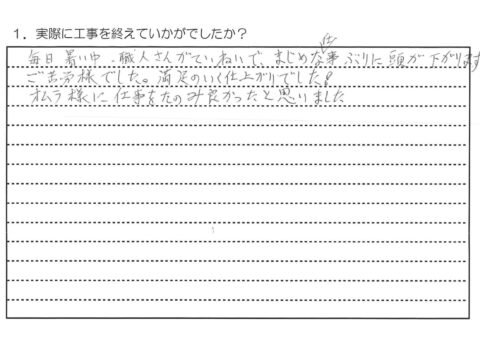 1．実際に工事を終えていかがでしたか？
毎日暑い中、職人さんがていねいで、まじめな仕事ぶりに頭が下がります
ご苦労様でした。満足のいく仕上がりでした！
オムラ様に仕事をたのみ良かったと思いました